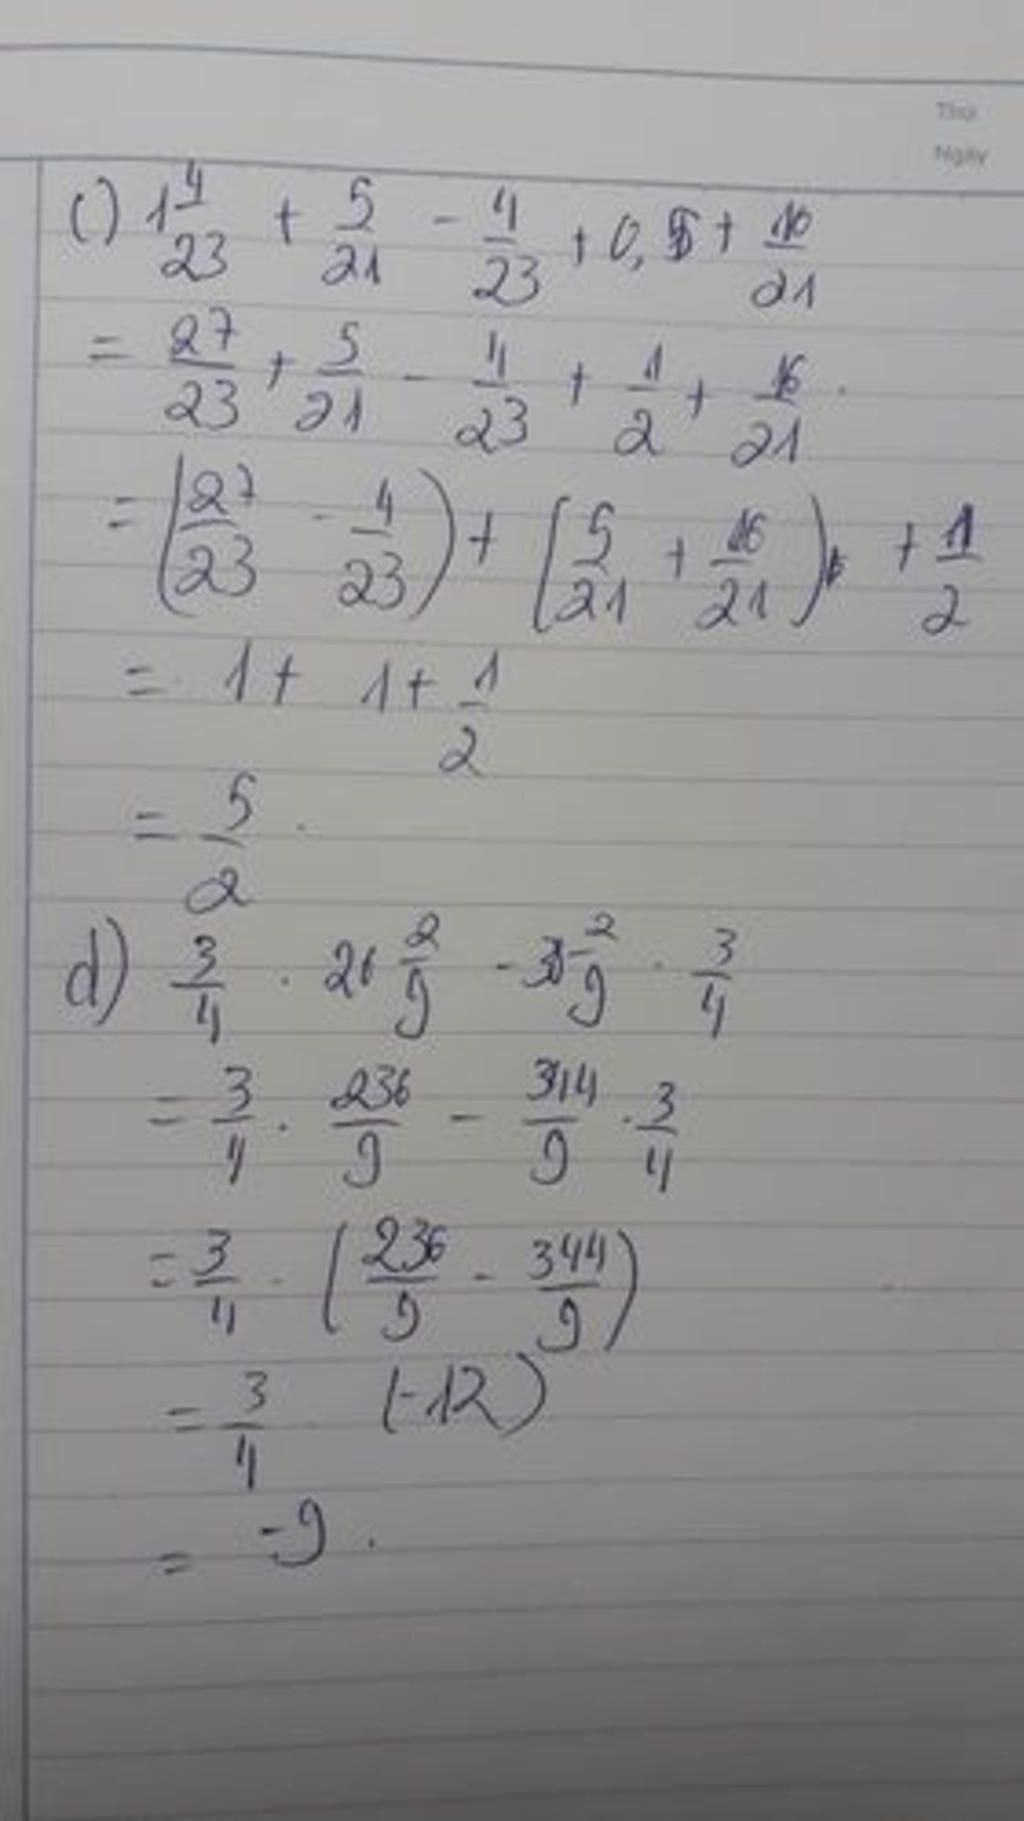 Thứ
Ngày
c) 1 4/23 + 5/21 - 4/23 + 0,5 + 16/21
= 27/23 + 5/21 - 4/23 + 1/2 + 16/21 .
= (27/23 - 4/23) + (5/21 + 16/21) + 1/2
= 1 + 1 + 1/2
= 5/2 .
d) 3/4 . 26 2/9 - 38 2/9 . 3/4
= 3/4 . 236/9 - 344/9 . 3/4
= 3/4 . (236/9 - 344/9)
= 3/4 . (-12)
= -9 .